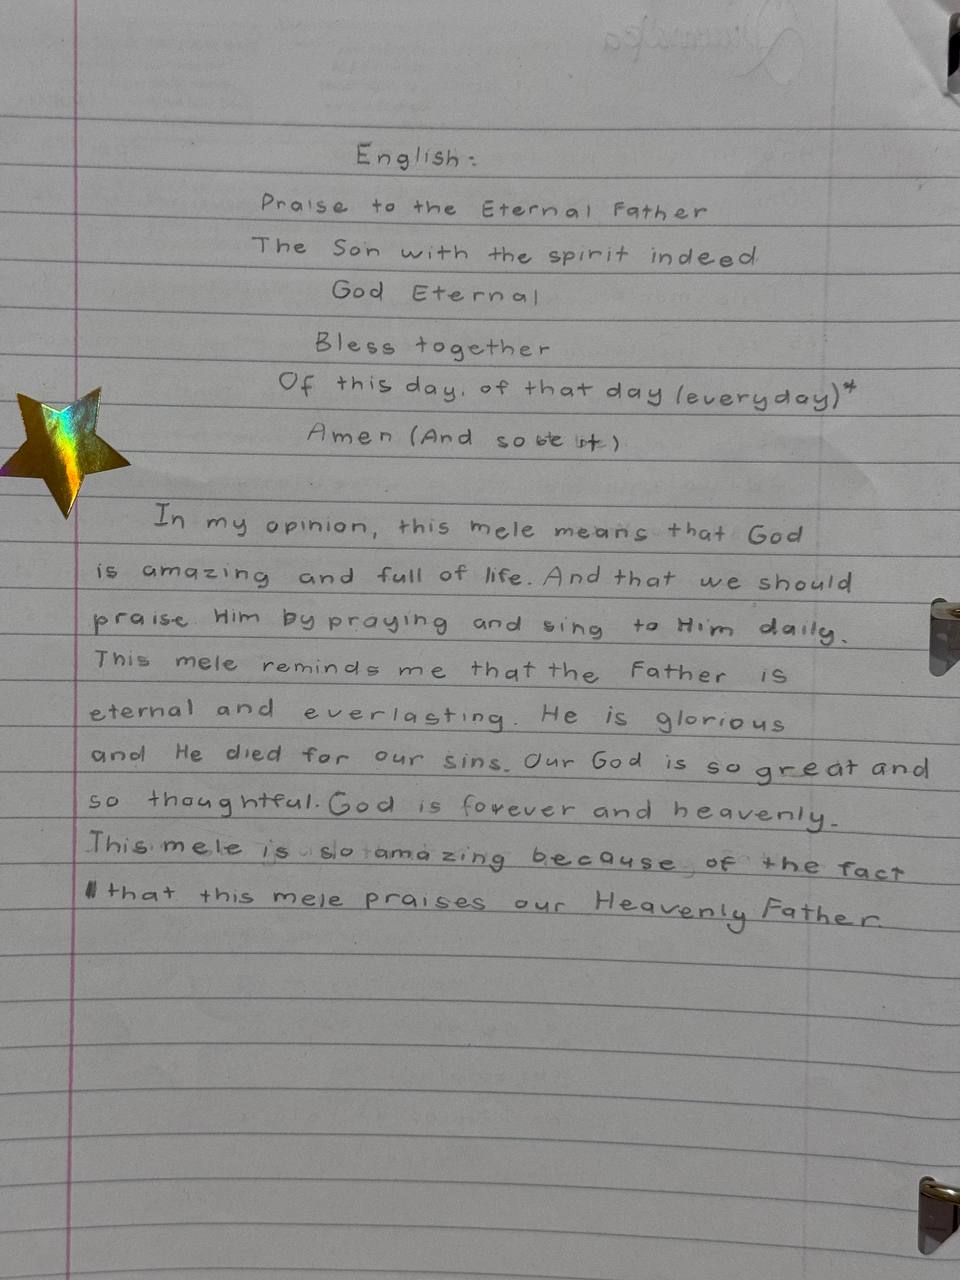 English:
Praise to the Eternal Father
The Son with the spirit indeed
God Eternal
Bless together
Of this day, of that day (everyday)*
Amen (And so be it)
In my opinion, this mele means that God
is amazing and full of life. And that we should
praise Him by praying and sing to Him daily.
This mele reminds me that the Father is
eternal and everlasting. He is glorious
and He died for our sins. Our God is so great and
so thoughtful. God is forever and heavenly.
This mele is so amazing because of the fact
that this mele praises our Heavenly Father.